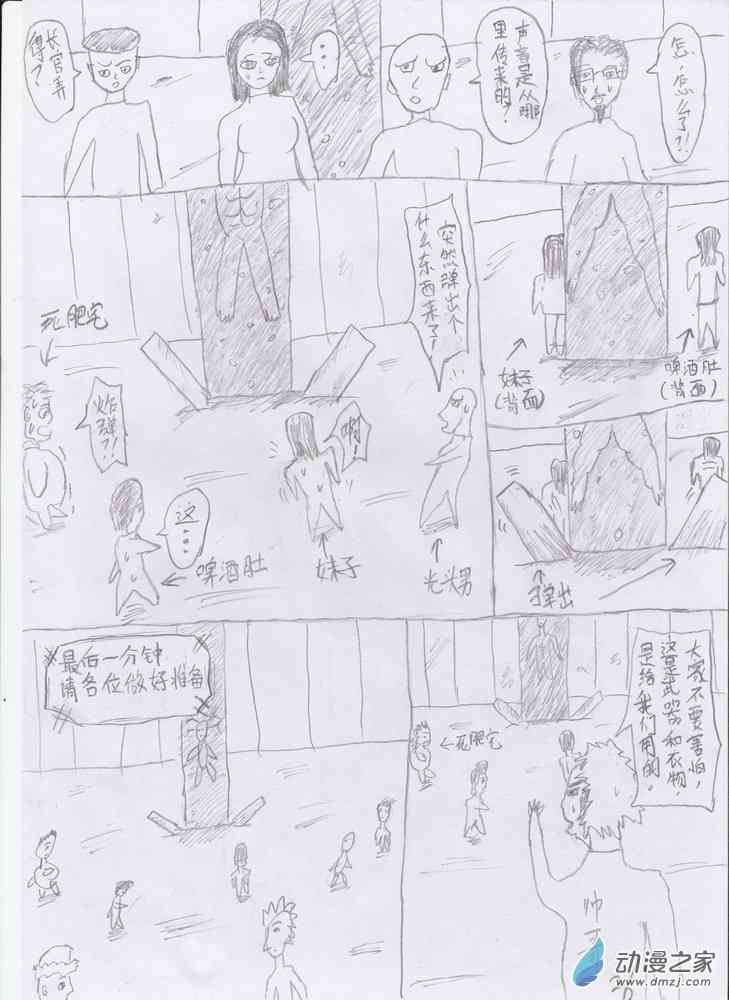 长官弄
得？
...
声音是从哪
里传来的？
怎，怎么了？！
死肥宅
炸
弹？！
这...
啤酒肚
啊！
妹子
突然弹出个
什么东西来了？
光头男
妹子
(背面)
啤酒肚
(背面)
弹出
最后一分钟
请各位做好准备
死肥宅
大家不要害怕，
这是武器和衣物，
是给我们用的。
帅
动漫之家
www.dmzj.com